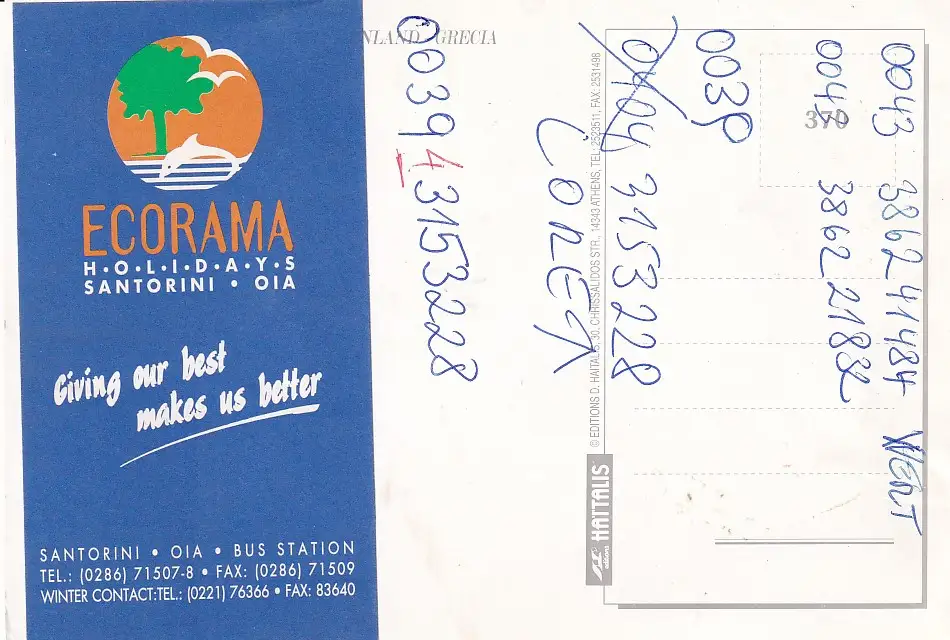 ECORAMA
H•O•L•I•D•A•Y•S
SANTORINI • OIA
Giving our best
makes us better
SANTORINI • OIA • BUS STATION
TEL.: (0286) 71507-8 • FAX: (0286) 71509
WINTER CONTACT:TEL.: (0221) 76366 • FAX: 83640
NLAND - GRECIA
370
© EDITIONS D. HAITALIS, 30, CHRISSALIDOS STR., 14343 ATHENS, TEL: 2523511, FAX: 2531498
HAITALIS
0043 3862 41484 WERT
0043 3862 21832
0039
0404 3153228
003943153228